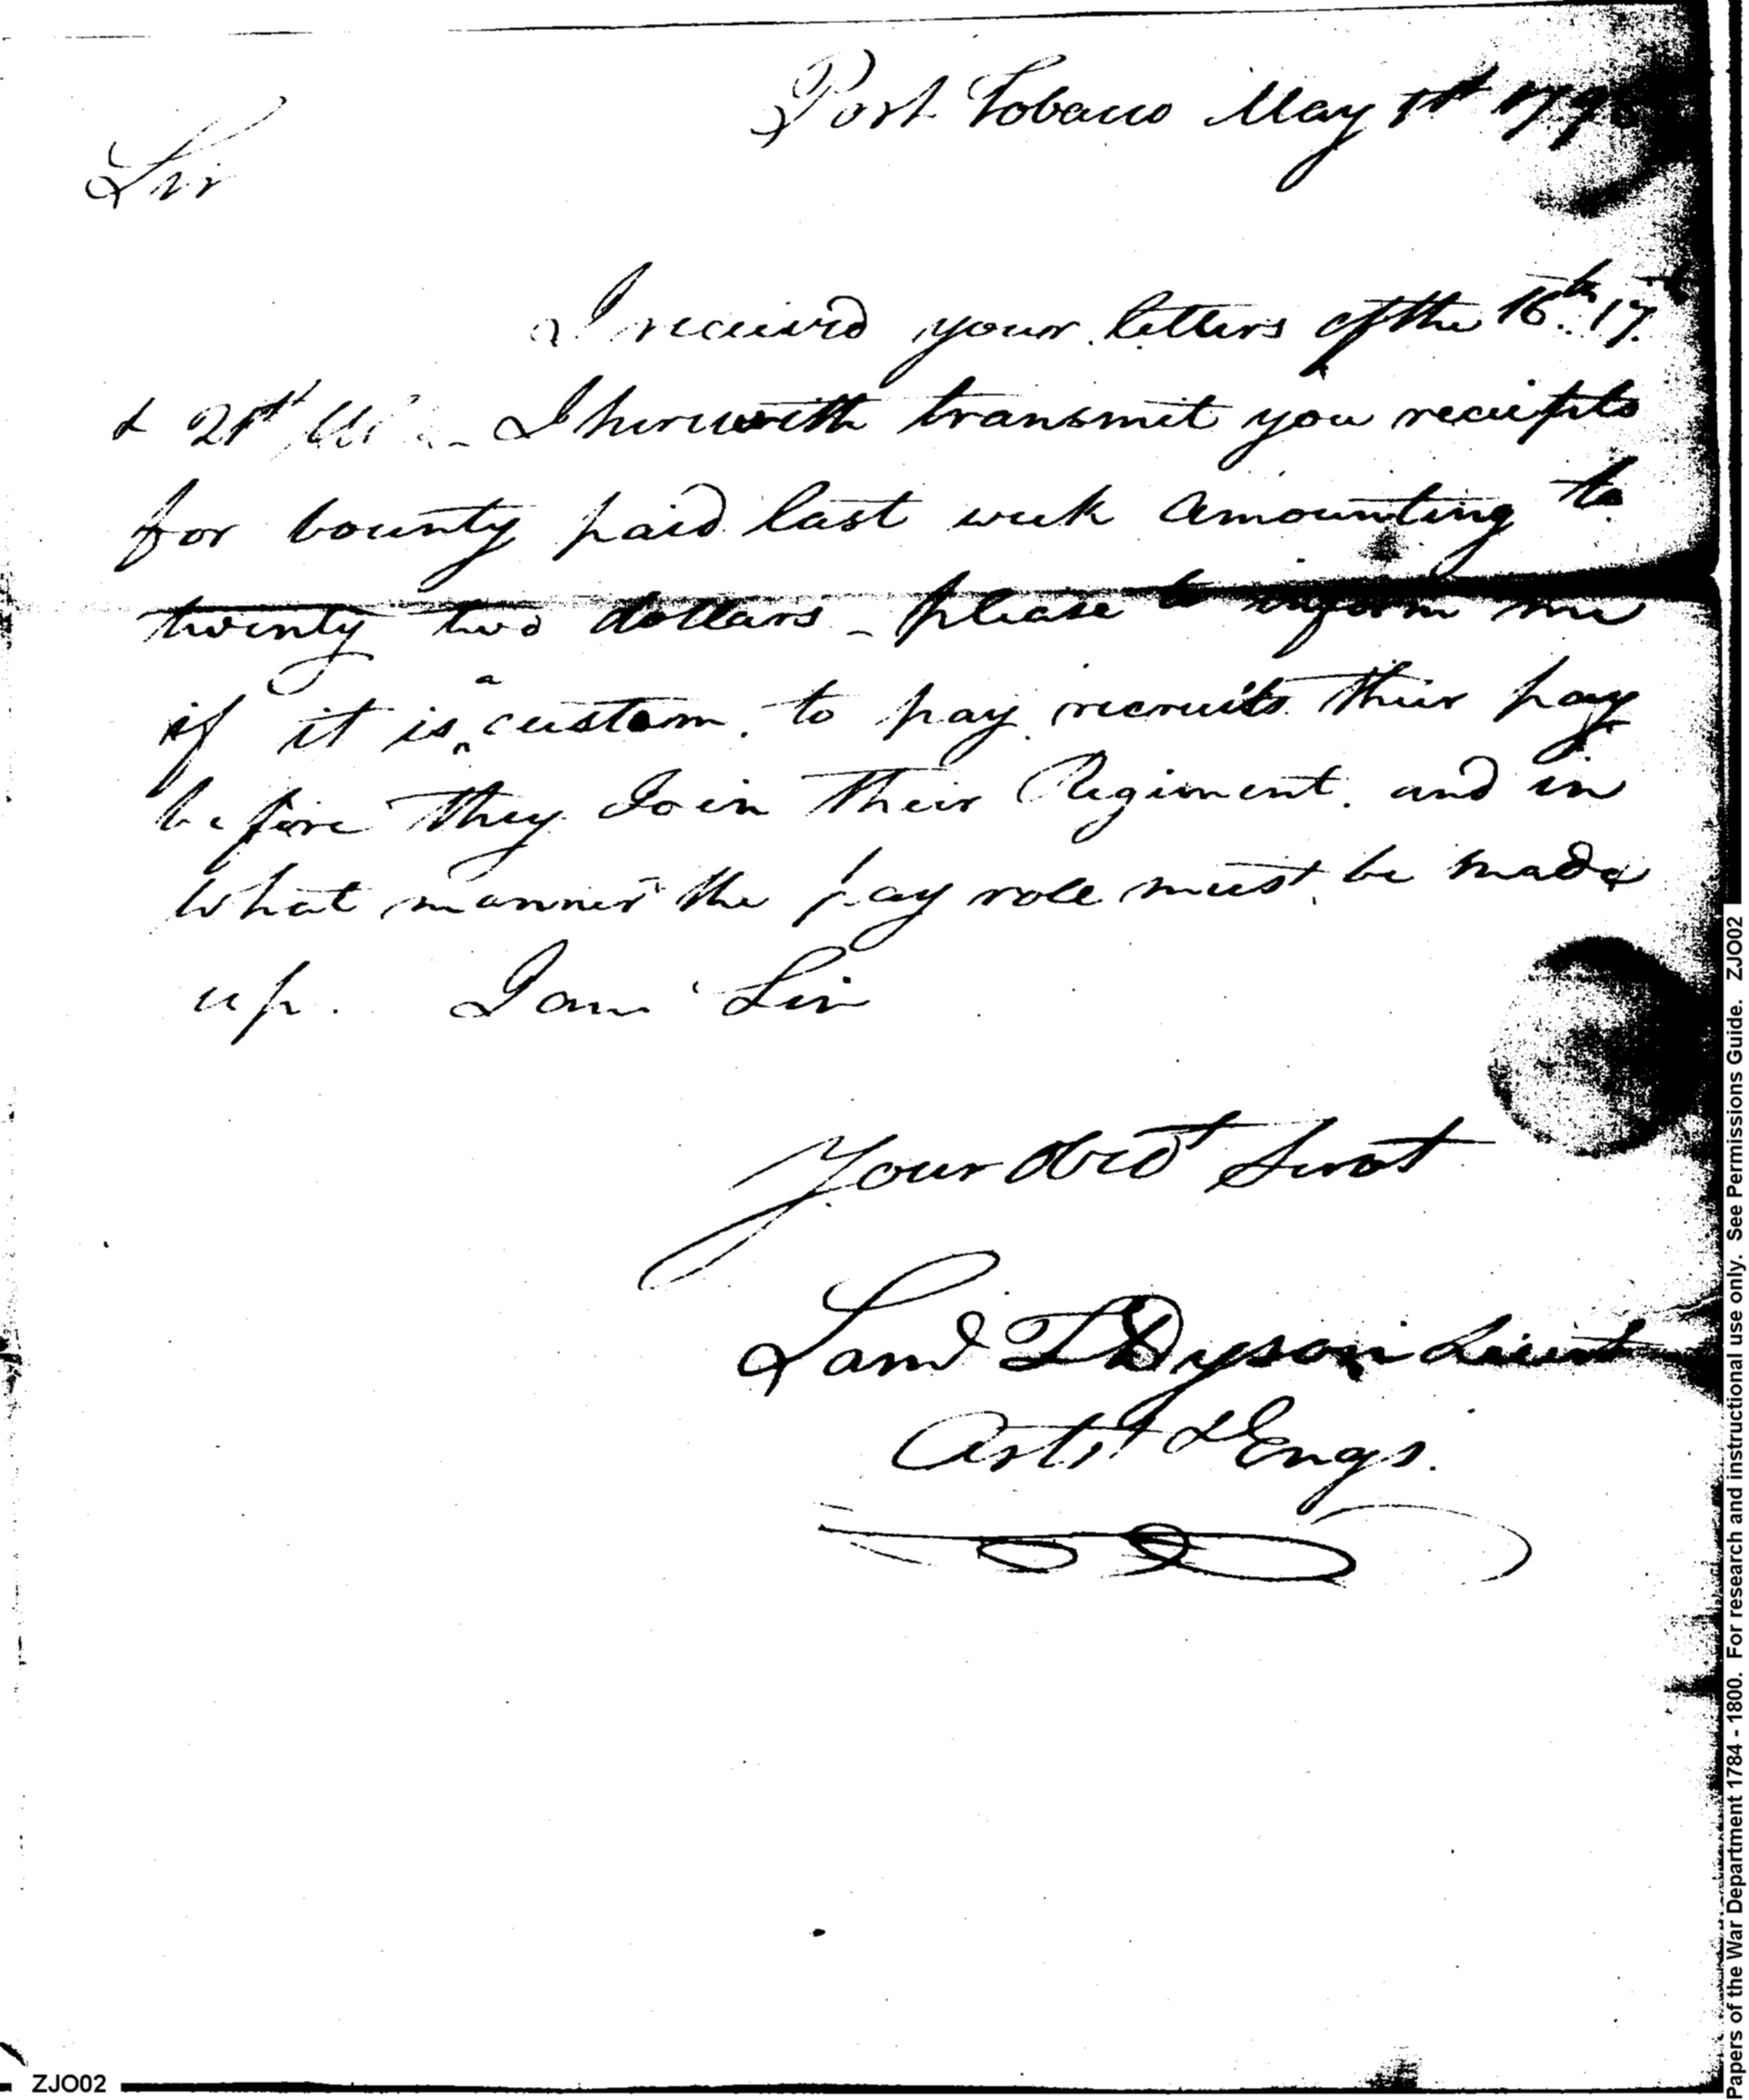 Port Tobacco May 1st 179
Sir
I received your letters of the 16th. 17th.
& 21st Ulto - I herewith transmit you receipts
for bounty paid last week amounting to
twenty two dollars - please to inform me
if it is a custom to pay recruits their pay
before they Join their Regiment. and in
what manner the pay role must be made
up. I am Sir
Your Obedt Servt
Saml T Dyson Lieut
Artist & Engs.
ZJO02
Papers of the War Department 1784 - 1800. For research and instructional use only. See Permissions Guide. ZJO02